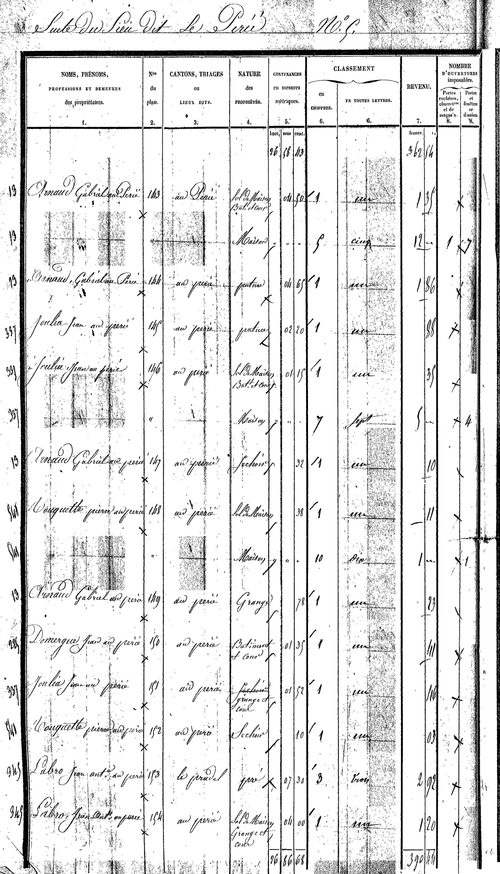 Suite du Lieu dit Le Perié N.° 5.
NOMS, PRÉNOMS,
PROFESSIONS ET DEMEURES
des propriétaires.
1.
Nos
du
plan.
2.
CANTONS, TRIAGES
ou
LIEUX DITS.
3.
NATURE
des
propriétés.
4.
CONTENANCES
en mesures
métriques.
5.
CLASSEMENT
en
CHIFFRES.
6.
EN TOUTES LETTRES.
6.
REVENU.
7.
NOMBRE
D'OUVERTURES
imposables.
Portes
cochères,
charretières
et de
magasin.
8.
Portes
et
fenêtres
ordinaires.
8.
hect. ares cent.
francs c.
26 58 43 362 54
19 Arnaud Gabriel au Perié 143 au Perié Sol de Maison 04 50 1 un 1 35
Bat. et cour
19 Maison 5 cinq 12 1 7
19 Arnaud Gabriel au Perié 144 au perié pature 04 65 1 un 1 86
337 Joulia Jean au perié 145 au perié pature 02 20 1 un 88
337 Joulia Jean au perié 146 au perié Sol de Maison 01 15 1 un 35
Bat. et cour
337 Maison 7 sept 5 4
19 Arnaud Gabriel au perié 147 au perié Sechoir 32 1 un 10
541 Rouquette pierre au perié 148 au perié Sol de Maison 38 1 un 11
541 Maison 10 dix 1 1
19 Arnaud Gabriel au perié 149 au perié Grange 78 1 un 23
Domergue Jean au perié 150 au perié Batiment 01 35 1 un 41
et cour
337 Joulia Jean au perié 151 au perié 01 52 1 un 46
grange et
cour
541 Rouquette pierre au perié 152 au perié Sechoir 10 1 un 03
345 Labro Jean ant.e au perié 153 le pradel pré 07 30 3 trois 2 92
345 Labro Jean Ant.e au perié 154 au perié Sol de Maison 04 00 1 un 1 20
Grange et
cour
26 86 68 390 44